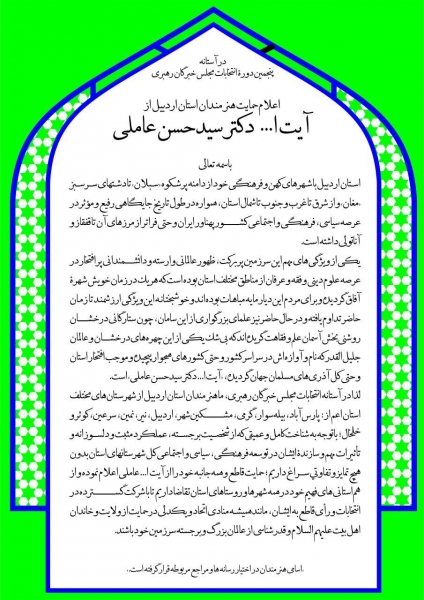 در آستانه
پنجمین دورهٔ انتخابات مجلس خبرگان رهبری
اعلام حمایت هنرمندان استان اردبیل از
آیت ا... دکتر سید حسن عاملی
باسمه تعالی
استان اردبیل با شهرهای کهن و فرهنگی خود از دامنه پر شکوه «سبلان» تا دشتهای سرسبز
«مغان» و از شرق تا غرب و جنوب تا شمال استان، همواره در طول تاریخ جایگاهی رفیع و مؤثر در
عرصه سیاسی، فرهنگی و اجتماعی کشور پهناور ایران و حتی فراتر از مرزهای آن تا قفقاز و
آناتولی داشته است.
یکی از ویژگی های مهم این سرزمین پربرکت، ظهور علمائی وارسته و دانشمندانی پرافتخار در
عرصه علوم دینی و فقه و عرفان از مناطق مختلف استان بوده است که هر یک در زمان خویش شهرهٔ
آفاق گردیده و برای مردم این دیار مایه مباهات بوده اند و خوشبختانه این ویژگی ارزشمند تا زمان
حاضر تداوم یافته و در حال حاضر نیز علمای بزرگواری از این سامان، چون ستارگانی درخشان
روشنی بخش آسمان علم و فقاهت گردیده اند که بی شک یکی از این چهره های درخشان و عالمان
جلیل القدر که نام و آوازه اش در سراسر کشور و حتی کشورهای همجوار پیچیده و موجب افتخار استان
و حتی کل آذری های مسلمان جهان گردیده، «آیت ا... دکتر سید حسن عاملی» است.
لذا در آستانه انتخابات مجلس خبرگان رهبری، ما هنرمندان استان اردبیل از شهرستان های مختلف
استان اعم از: پارس آباد، بیله سوار، گرمی، مشگین شهر، اردبیل، نیر، نمین، سرعین، کوثر و
خلخال؛ با توجه به شناخت کامل و عمیقی که از شخصیت برجسته، عملکرد مثبت و دلسوزانه و
تأثیرات مهم و سازندهٔ ایشان در توسعه فرهنگی، سیاسی و اجتماعی کل شهرستانهای استان بدون
هیچ تمایز و تفاوتی سراغ داریم؛ حمایت قاطع و همه جانبه خود را از آیت... عاملی اعلام نموده و از
هم استانی های فهیم خود در همه شهرها و روستاهای استان تقاضا داریم تا با شرکت گسترده در
انتخابات و رأی قاطع به ایشان، مانند همیشه منادی اتحاد و یکدلی در حمایت از ولایت و خاندان
اهل بیت علیهم السلام و قدرشناسی از عالمان بزرگ و برجسته سرزمین خود باشند.
«اسامی هنرمندان در اختیار رسانه ها و مراجع مربوطه قرار گرفته است.»